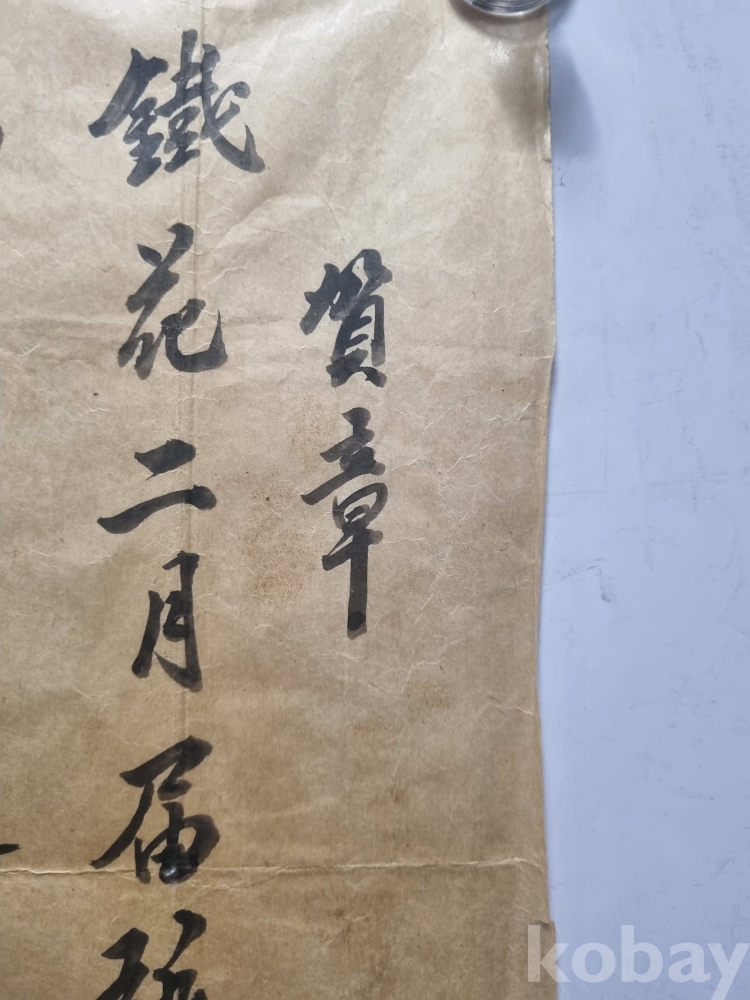 賀章
鐵花二月屆
kobay